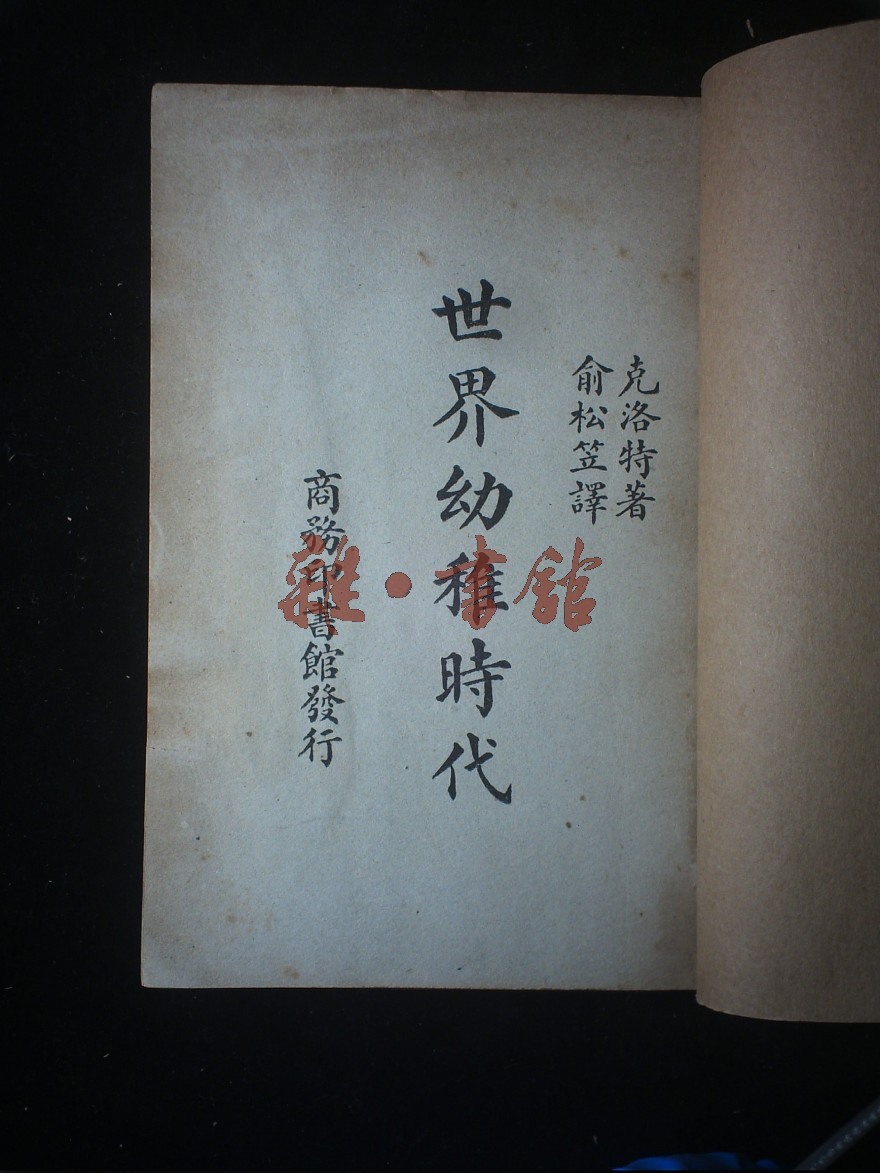 克洛特著
俞松笠譯
世界幼稚時代
商務印書館發行
雜·書館